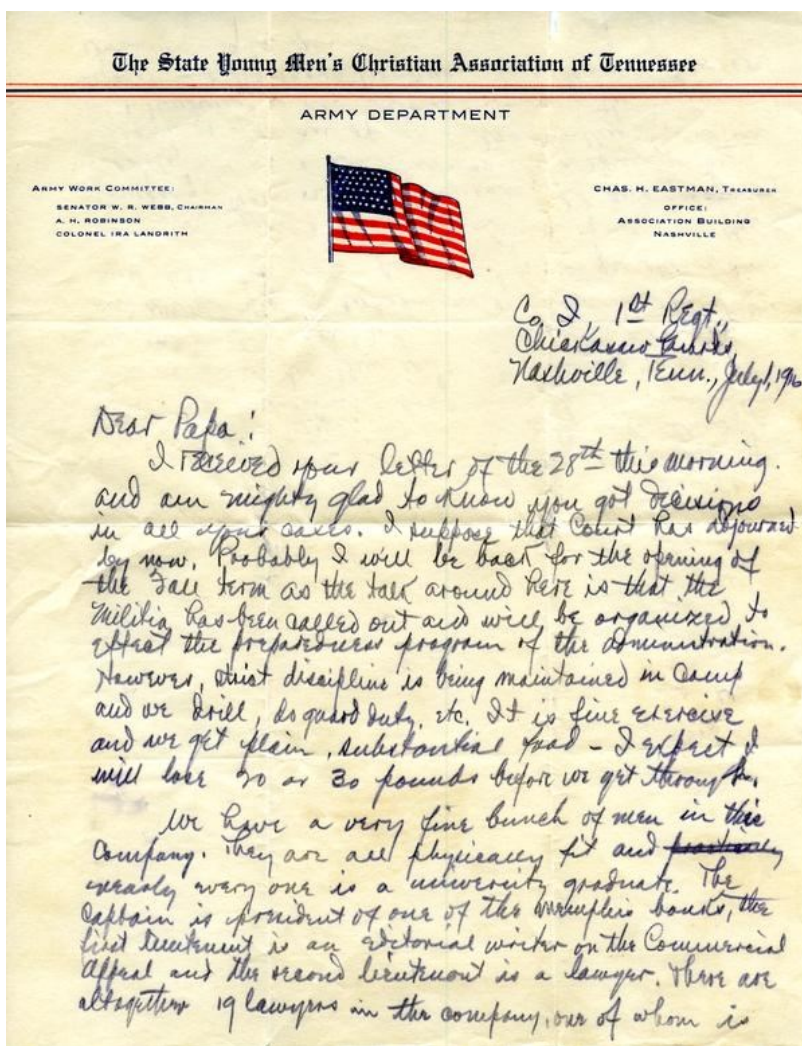 The State Young Men's Christian Association of Tennessee
ARMY DEPARTMENT
ARMY WORK COMMITTEE:
SENATOR W. R. WEBB, CHAIRMAN
A. H. ROBINSON
COLONEL IRA LANDRITH
CHAS. H. EASTMAN, TREASURER
OFFICE:
ASSOCIATION BUILDING
NASHVILLE
Co. I, 1st Regt.,
Chickasaw Guards,
Nashville, Tenn., July 1, 1916
Dear Papa:
I received your letter of the 28th this morning.
and am mighty glad to know you got decisions
in all your cases. I suppose that Court has adjourned
by now. Probably I will be back for the opening of
the Fall term as the talk around here is that the
Militia has been called out and will be organized to
effect the preparedness program of the administration.
However, strict discipline is being maintained in Camp
and we drill, do guard duty, etc. It is fine exercise
and we get plain, substantial food - I expect I
will lose 20 or 30 pounds before we get through.
We have a very fine bunch of men in this
Company. They are all physically fit and
nearly every one is a university graduate. The
Captain is president of one of the Memphis banks, the
first lieutenant is an editorial writer on the Commercial
Appeal and the second lieutenant is a lawyer. There are
altogether 19 lawyers in the company, one of whom is